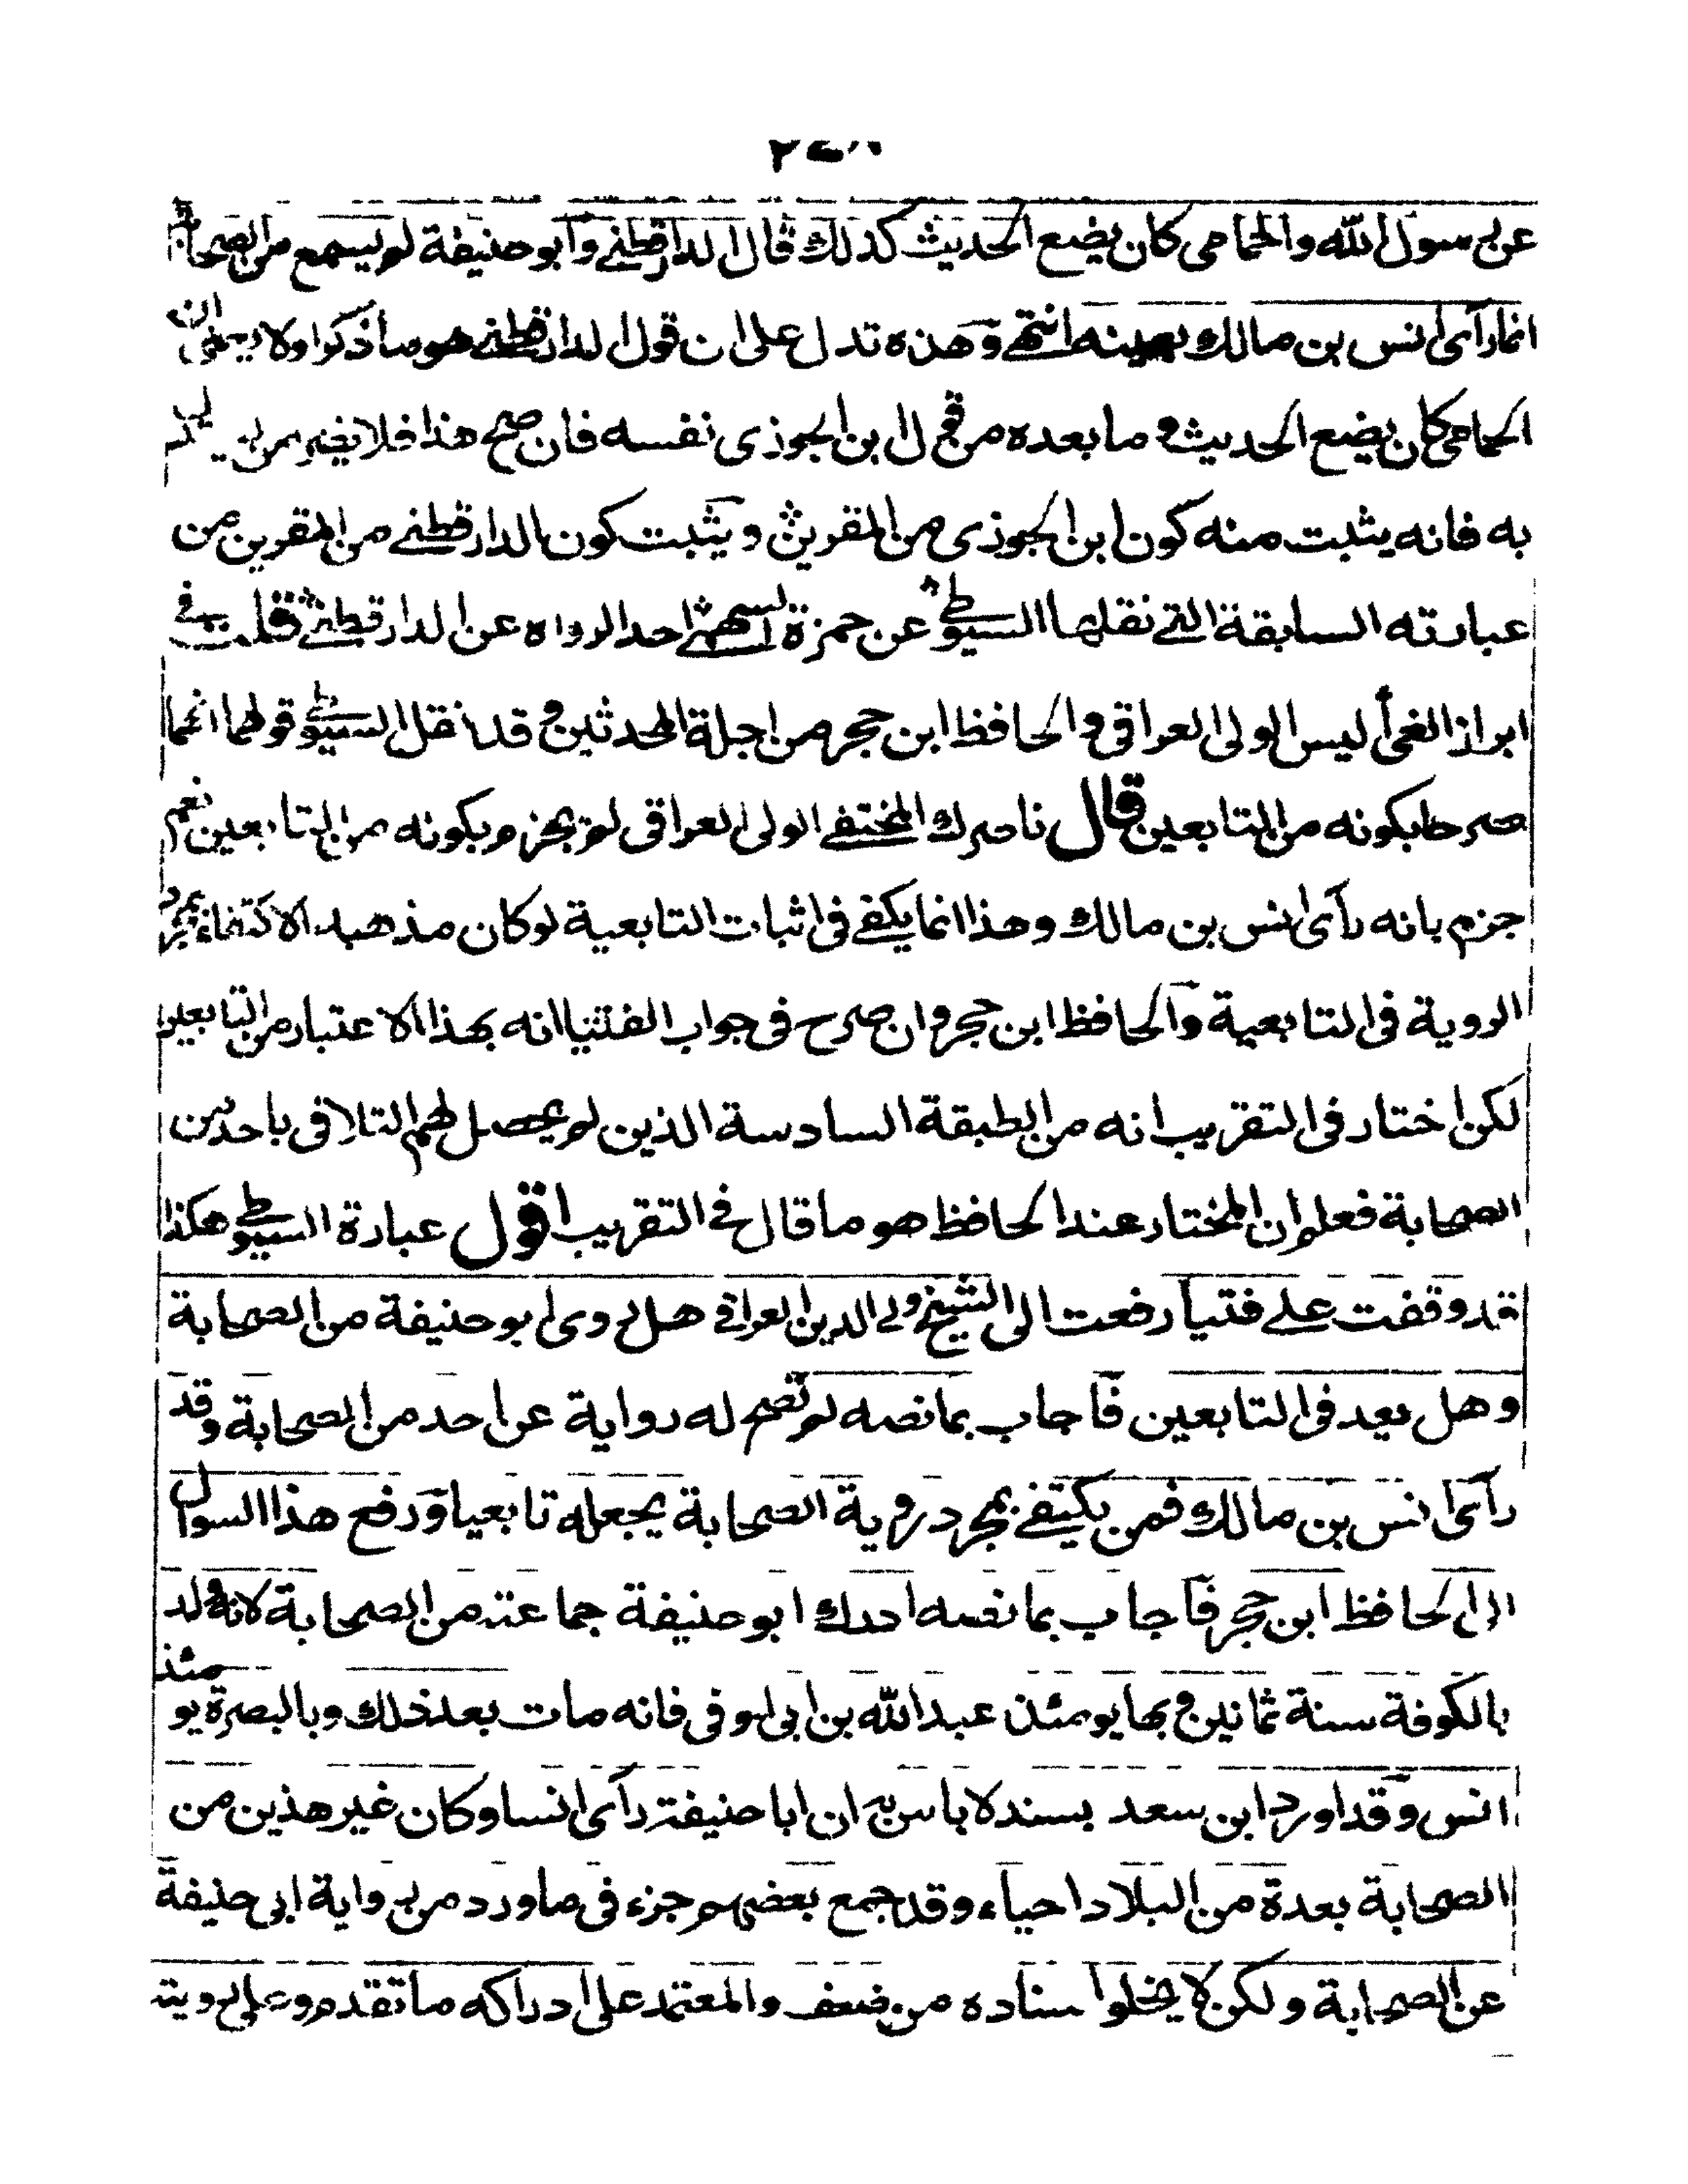 عن رسول الله والحمامى كان يضع الحديث كذلك قال الدارقطنى وابو حنيفة لم يسمع من الصحابة
انما رآى انس بن مالك بعينه انتهى وهذه تدل على ان قول الدارقطنى هو ما ذكر اولا يعنى ان
الحمامى كان يضع الحديث وما بعده من قول ابن الجوزى نفسه فان صح هذا فلا يضير من
به فانه يثبت منه كون ابن الجوزى من المقرين ويثبت كون الدارقطنى من المقرين من
عبارته السابقة التى نقلها السيوطى عن حمزة السهمى احد الرواه عن الدارقطنى قلت فى
ابراز الغى أليس الولى العراقى والحافظ ابن حجر من اجلة المحدثين وقد نقل السيوطى قولهما انهما
صرحا بكونه من التابعين قال ناصرك المختفى الولى العراقى لم يجزم بكونه من التابعين نعم
جزم بانه رآى انس بن مالك وهذا انما يكفى فى اثبات التابعية لو كان مذهبه الاكتفاء بمجرد
الروية فى التابعية والحافظ ابن حجر وان صرح فى جواب الفتيا انه بهذا الاعتبار من التابعين
لكن اختار فى التقريب انه من الطبقة السادسة الذين لم يحصل لهم التلاقى باحد من
الصحابة فعلم ان المختار عند الحافظ هو ما قال فى التقريب اقول عبارة السيوطى هكذا
قد وقفت على فتيا رفعت الى الشيخ ولى الدين العراقى هل روى ابو حنيفة من الصحابة
وهل يعد فى التابعين فاجاب بما نصه لم تصح له رواية عن احد من الصحابة وقد
رآى انس بن مالك فمن يكتفى بمجرد روية الصحابة يجعله تابعيا ورفع هذا السوال
الى الحافظ ابن حجر فاجاب بما نصه ادرك ابو حنيفة جماعة من الصحابة لانه ولد
بالكوفة سنة ثمانين وبها يومئذ عبد الله بن ابى اوفى فانه مات بعد ذلك وبالبصرة يومئذ
انس وقد اورد ابن سعد بسند لا باس به ان ابا حنيفة رآى انسا وكان غير هذين من
الصحابة بعدة من البلاد احياء وقد جمع بعضهم جزء فى ما ورد من رواية ابى حنيفة
عن الصحابة ولكن لا يخلوا سناده من ضعف والمعتمد على ادراكه ما تقدم وعلى رويته